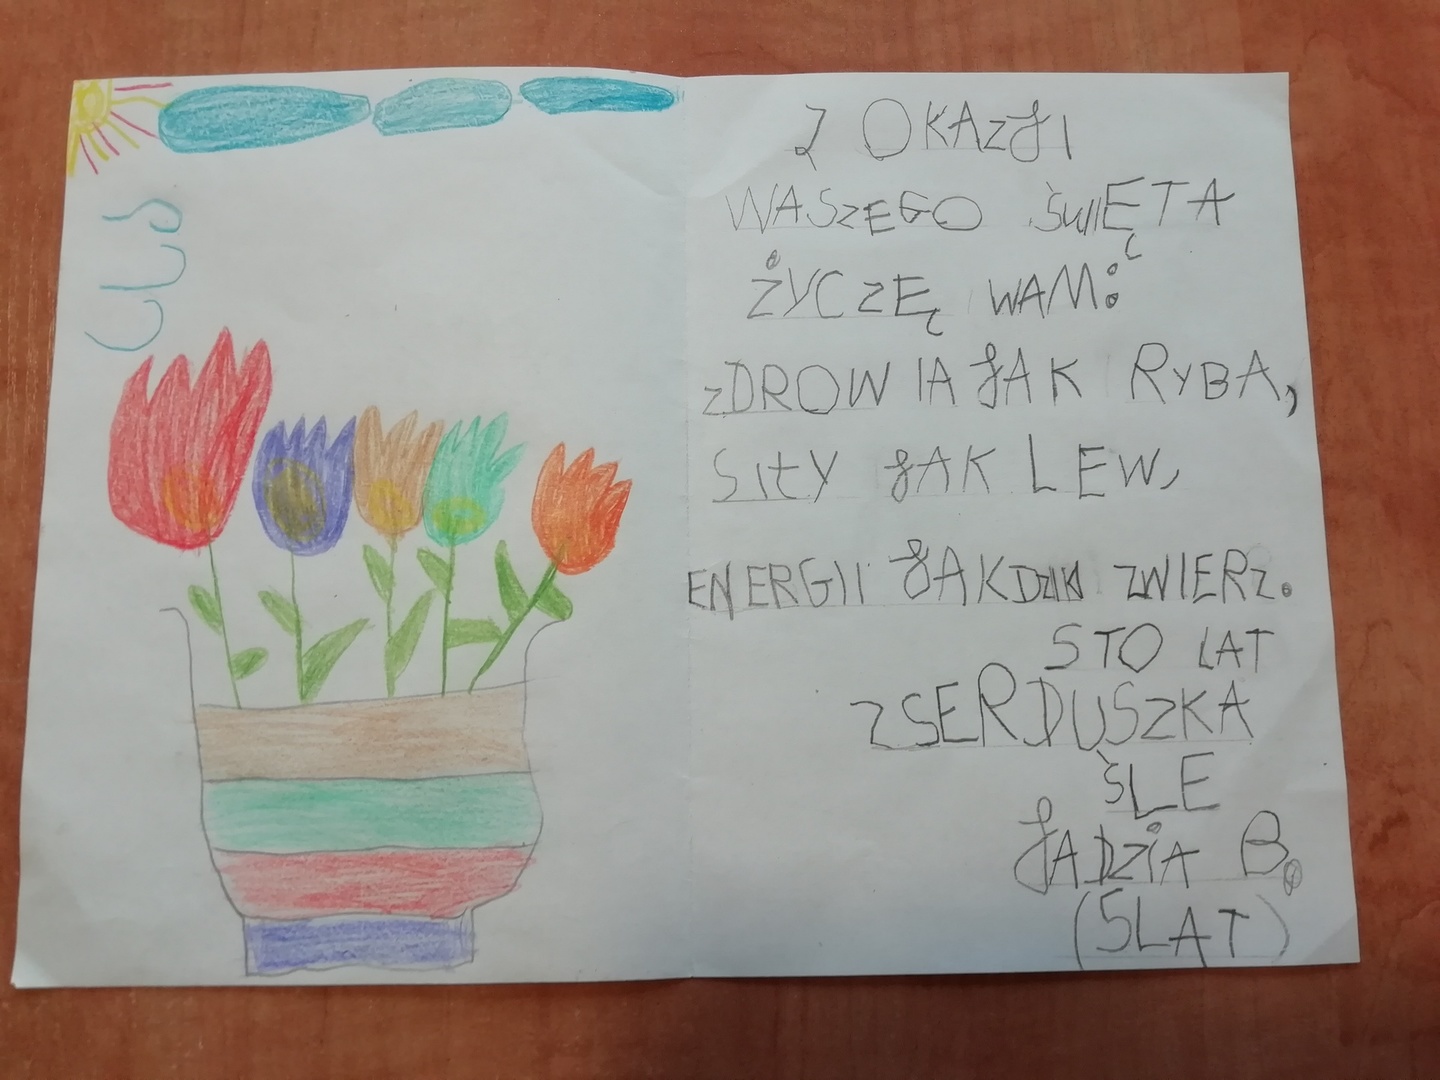 Z OKAZJI
WASZEGO ŚWIĘTA
ŻYCZĘ WAM:
ZDROWIA JAK RYBA,
SIŁY JAK LEW,
ENERGII JAK DZIKI ZWIERZ.
STO LAT
Z SERDUSZKA
ŚLE
JADZIA B.
(5 LAT)